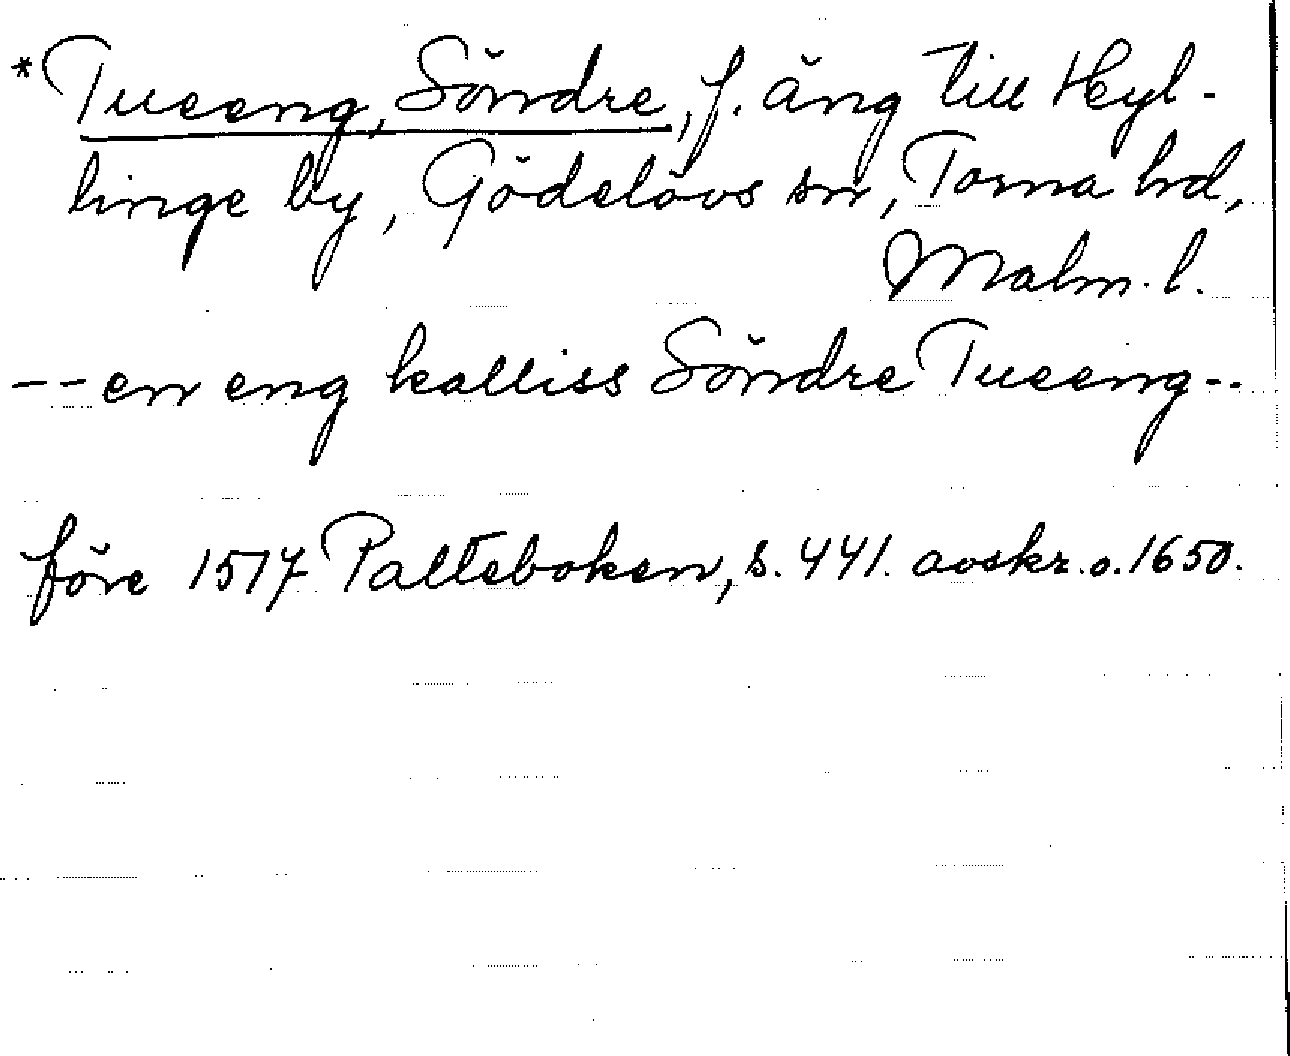 *Tueeng, Söndre, f. äng till Heyl-
linge by, Gödelövs sn, Torna hd,
Malm. l.
-- en eng kalliss Söndre Tueeng --
före 1517 Palteboken, s. 441. avskr. o. 1650.